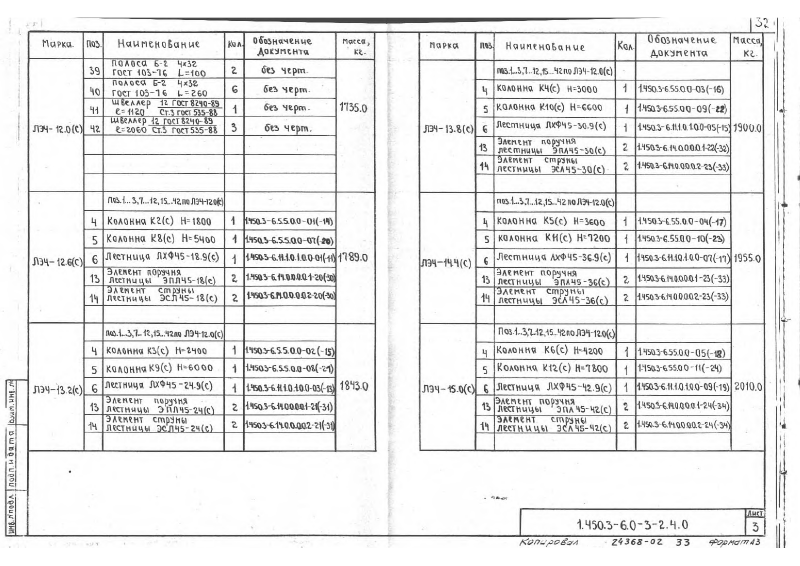 32
Марка Поз. Наименование Кол. Обозначение документа Масса, кг.
ЛЭЧ-12.0(с) 1735.0
39 Полоса Б-2 4х32 ГОСТ 103-76 L=100 2 без черт.
40 Полоса Б-2 4х32 ГОСТ 103-76 L=260 6 без черт.
41 Швеллер 12 ГОСТ 8240-89 ℓ=1120 Ст.3 ГОСТ 535-88 1 без черт.
42 Швеллер 12 ГОСТ 8240-89 ℓ=2060 Ст.3 ГОСТ 535-88 3 без черт.
ЛЭЧ-12.6(с) 1789.0
Поз.1...3,7...12,15...42 по ЛЭЧ-12.0(с)
4 Колонна К2(с) Н=1800 1 1.450.3-6.5.5.0.0-01(-19)
5 Колонна К8(с) Н=5400 1 1.450.3-6.5.5.0.0-07(-20)
6 Лестница ЛХФ45-18.9(с) 1 1.450.3-6.11.1.0.1.0.0-01(-11)
13 Элемент поручня лестницы ЭПЛ45-18(с) 2 1.450.3-6.14.0.0.0.0.1-20(-30)
14 Элемент струны лестницы ЭСЛ45-18(с) 2 1.450.3-6.14.0.0.0.0.2-20(-30)
ЛЭЧ-13.2(с) 1843.0
поз.1...3,7...12,15...42 по ЛЭЧ-12.0(с)
4 Колонна К3(с) Н=2400 1 1.450.3-6.5.5.0.0-02(-15)
5 Колонна К9(с) Н=6000 1 1.450.3-6.5.5.0.0-08(-21)
6 Лестница ЛХФ45-24.9(с) 1 1.450.3-6.11.1.0.1.0.0-03(-13)
13 Элемент поручня лестницы ЭПЛ45-24(с) 2 1.450.3-6.14.0.0.0.0.1-21(-31)
14 Элемент струны лестницы ЭСЛ45-24(с) 2 1.450.3-6.14.0.0.0.0.2-21(-31)
Марка Поз. Наименование Кол. Обозначение документа Масса, кг.
ЛЭЧ-13.8(с) 1900.0
поз.1...3,7...12,15...42 по ЛЭЧ-12.0(с)
4 Колонна К4(с) Н=3000 1 1.450.3-6.5.5.0.0-03(-16)
5 Колонна К10(с) Н=6600 1 1.450.3-6.5.5.0.0-09(-22)
6 Лестница ЛХФ45-30.9(с) 1 1.450.3-6.11.1.0.1.0.0-05(-15)
13 Элемент поручня лестницы ЭПЛ45-30(с) 2 1.450.3-6.14.0.0.0.0.1-22(-32)
14 Элемент струны лестницы ЭСЛ45-30(с) 2 1.450.3-6.14.0.0.0.0.2-23(-33)
ЛЭЧ-14.4(с) 1955.0
поз.1...3,7...12,15...42 по ЛЭЧ-12.0(с)
4 Колонна К5(с) Н=3600 1 1.450.3-6.5.5.0.0-04(-17)
5 Колонна К11(с) Н=7200 1 1.450.3-6.5.5.0.0-10(-23)
6 Лестница ЛХФ45-36.9(с) 1 1.450.3-6.11.1.0.1.0.0-07(-17)
13 Элемент поручня лестницы ЭПЛ45-36(с) 2 1.450.3-6.14.0.0.0.0.1-23(-33)
14 Элемент струны лестницы ЭСЛ45-36(с) 2 1.450.3-6.14.0.0.0.0.2-23(-33)
ЛЭЧ-15.0(с) 2010.0
Поз.1...3,7...12,15...42 по ЛЭЧ-12.0(с)
4 Колонна К6(с) Н=4200 1 1.450.3-6.5.5.0.0-05(-18)
5 Колонна К12(с) Н=7800 1 1.450.3-6.5.5.0.0-11(-24)
6 Лестница ЛХФ45-42.9(с) 1 1.450.3-6.11.1.0.1.0.0-09(-19)
13 Элемент поручня лестницы ЭПЛ45-42(с) 2 1.450.3-6.14.0.0.0.0.1-24(-34)
14 Элемент струны лестницы ЭСЛ45-42(с) 2 1.450.3-6.14.0.0.0.0.2-24(-34)
Инв.№подл. Подп. и дата Взам.инв.№
1.450.3-6.0-3-2.4.0
Лист
3
Копировал 24368-02 33 Формат А3